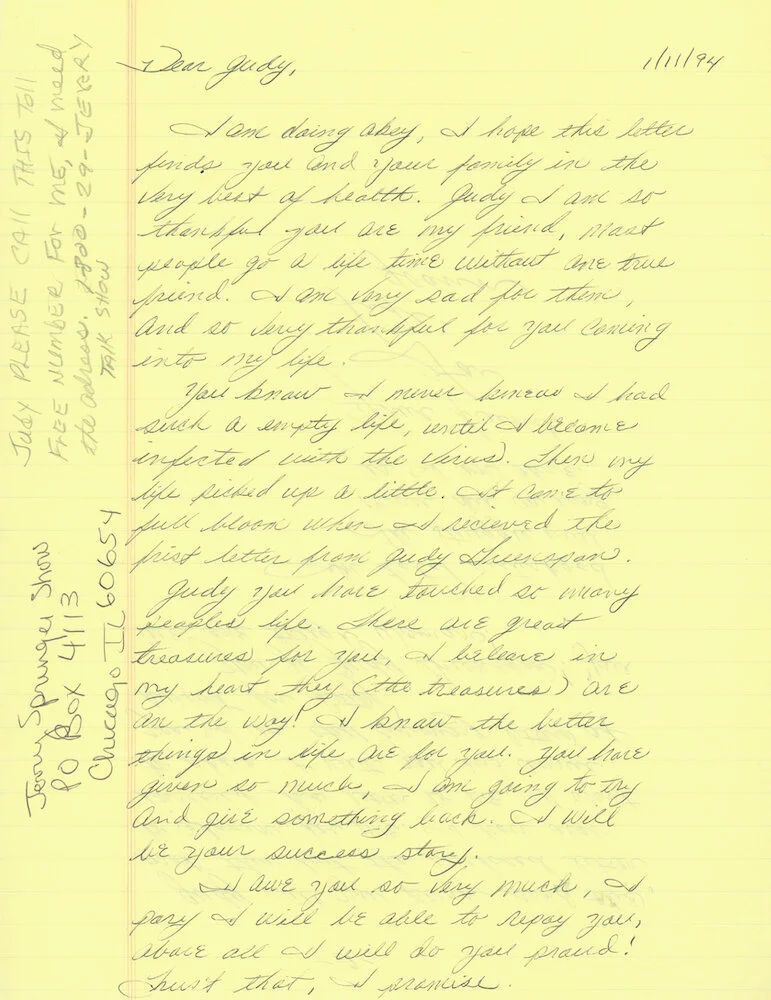 Dear Judy,
1/11/94
I am doing okey, I hope this letter
finds you and your family in the
very best of health. Judy I am so
thankful you are my friend, most
people go a life time without one true
friend. I am very sad for them,
And so very thankful for you coming
into my life.
You know I never knew I had
such a empty life, until I became
infected with the virus. Then my
life picked up a little. It come to
full bloom when I recieved the
frist letter from Judy Greenspan.
Judy you have touched so many
peoples life. There are great
treasures for you, I beleave in
my heart they (the treasures) are
on the way! I know the better
things in life are for you. You have
given so much, I am going to try
and give something back. I will
be your success story.
I owe you so very much, I
pary I will be able to repay you,
above all I will do you proud!
Trust that, I promise.
Judy PLEASE CAll THIS Toll
FREE NUMBER FOR ME, I need
the adress. 1-800-29-JERRY
TAlk SHOW
Jerry Springer Show
PO Box 4113
Chicago IL 60654